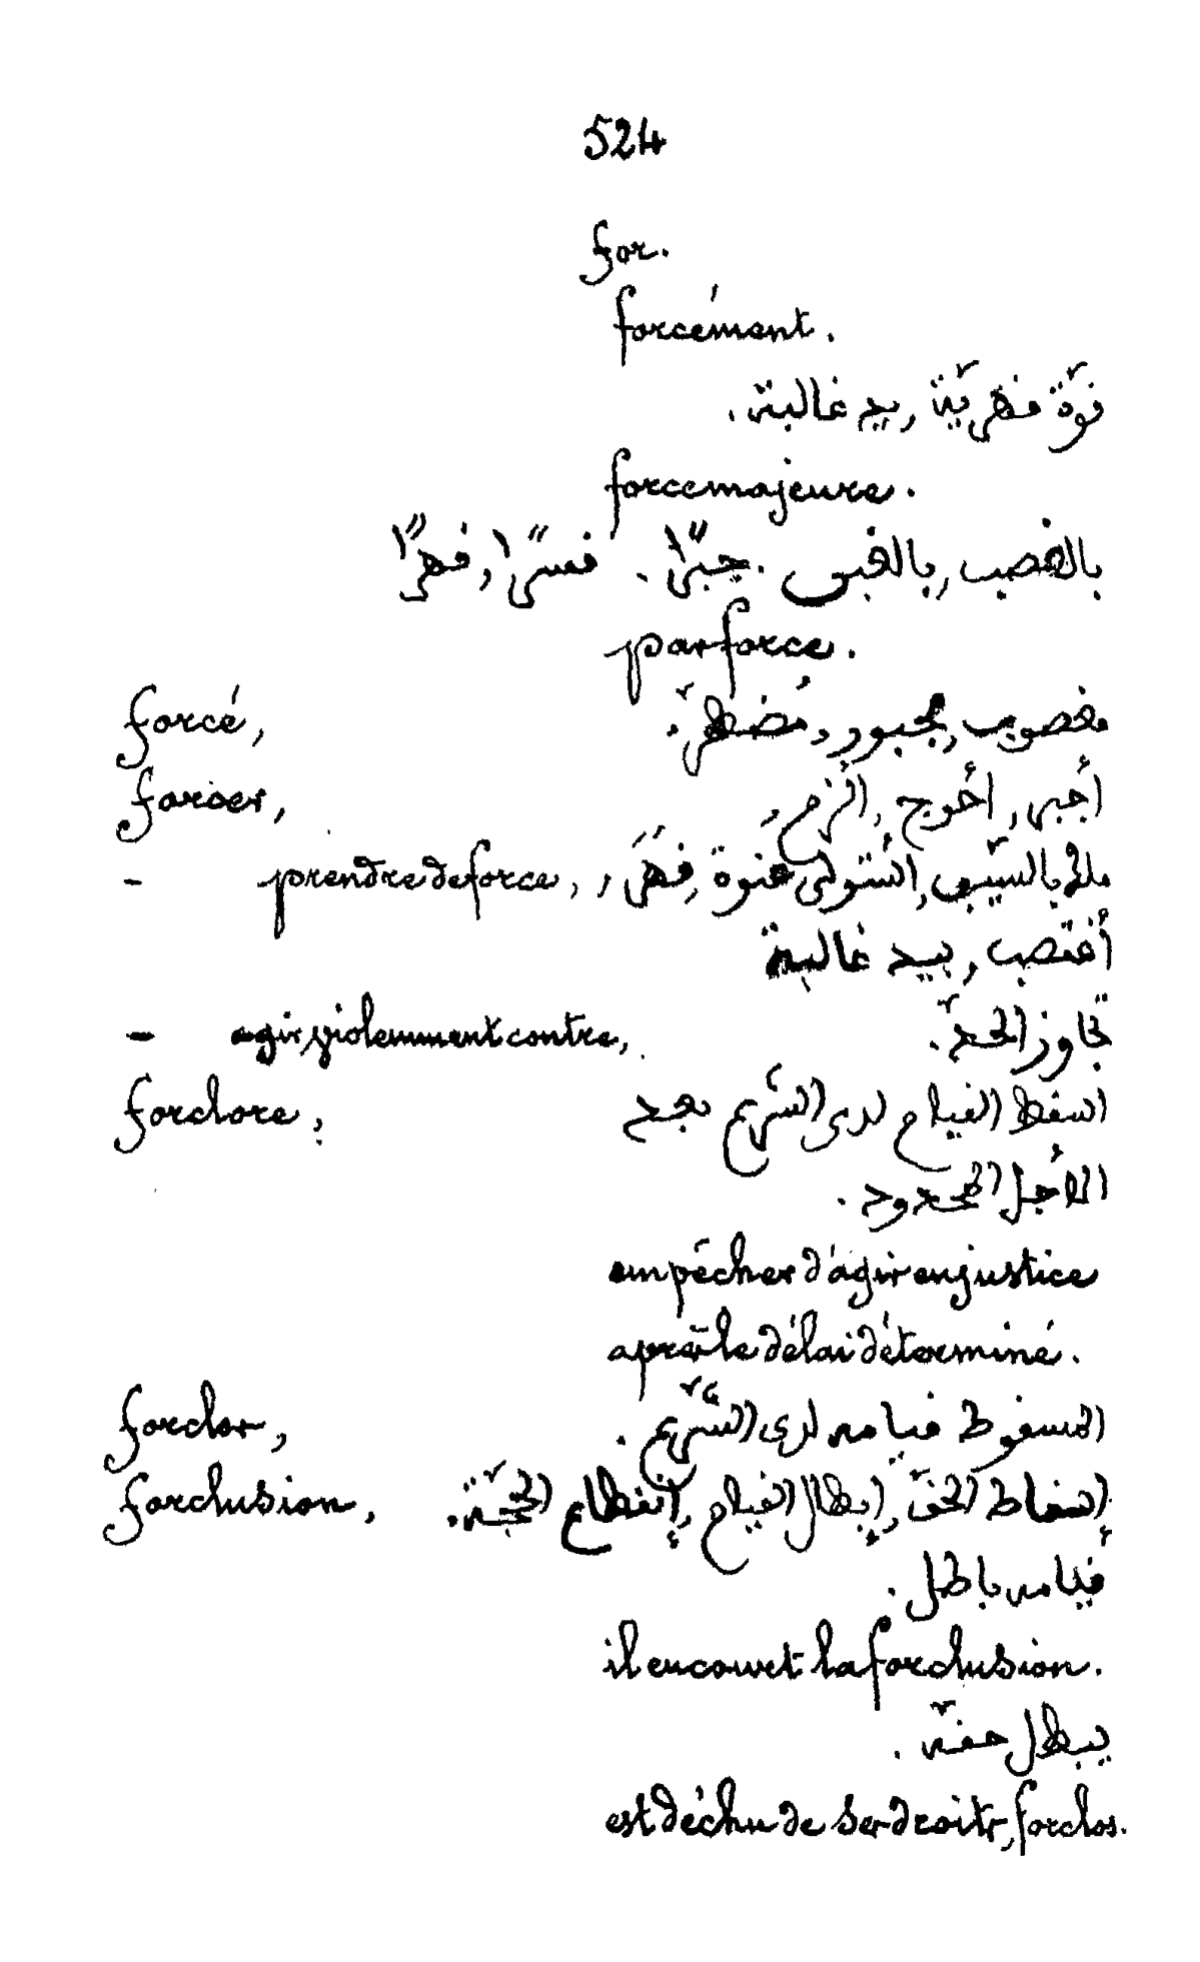 524
for.
forcément.
قوّة قهريّة, يد غالبة.
force majeure.
بالغصب, بالقبى. جبرًا. قسرًا, قهرًا
par force.
forcé, مغصوب, مجبور, مُضطرّ.
forcer, أجبر, أحوج, ألزم,
- prendre de force, ملك بالسّيف, استولى عنوة, قهرَ,
أغتصب, بيد غالبة
- agir violemment contre, تجاوز الحدّ.
forclore, اسقط القيام لدى الشّرع بعد
الأجل المحدود.
empêcher d'agir en justice
après le délai déterminé.
forclos, المسقوط قيامه لدى الشّرع.
forclusion, إسقاط الحقّ, إبطال القيام, إنقطاع الحجّة.
قيامه باطل.
il encourt la forclusion.
يبطل حقّه.
est déchu de ses droits, forclos.